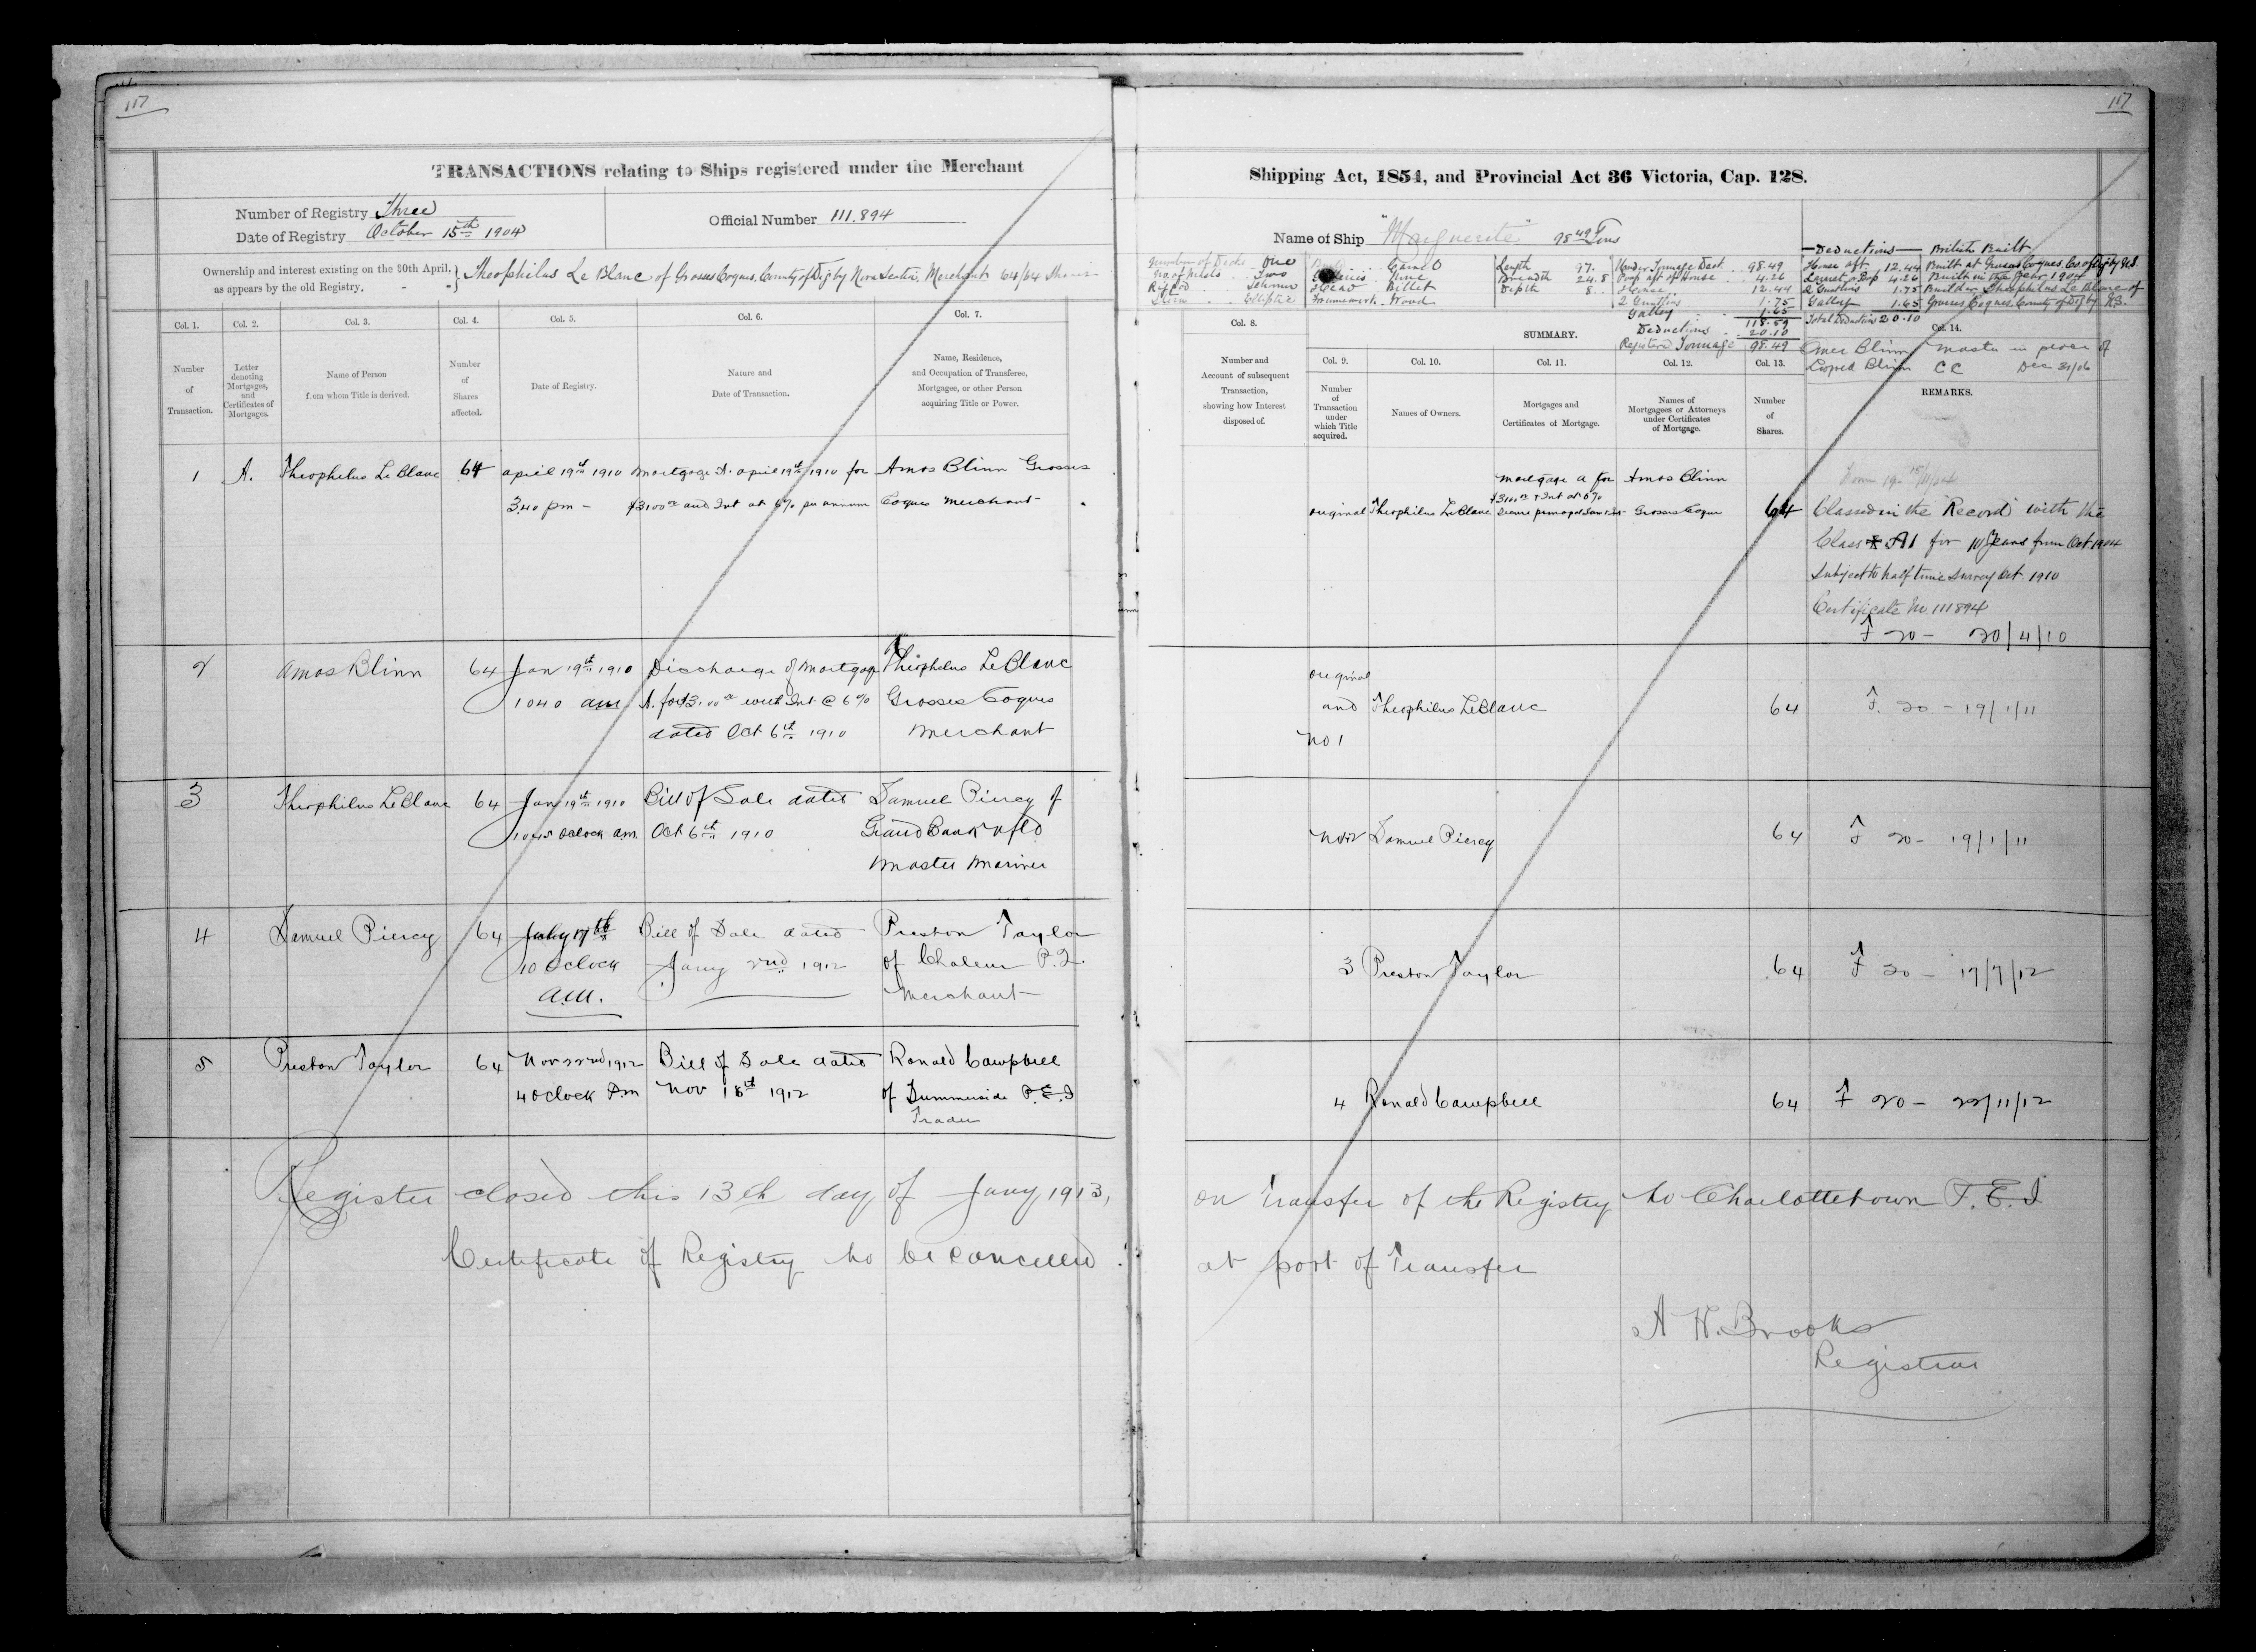 117
TRANSACTIONS relating to Ships registered under the Merchant
Number of Registry Three
Date of Registry October 15th 1904
Official Number 111.894
Ownership and interest existing on the 30th April,
as appears by the old Registry.
Theophilus Le Blanc of Grosses Coques, County of Digby Nova Scotia, Merchant 64/64 Shares
Col. 1.
Col. 2.
Col. 3.
Col. 4.
Col. 5.
Col. 6.
Col. 7.
Number
of
Transaction.
Letter
denoting
Mortgages,
and
Certificates of
Mortgages.
Name of Person
from whom Title is derived.
Number
of
Shares
affected.
Date of Registry.
Nature and
Date of Transaction.
Name, Residence,
and Occupation of Transferee,
Mortgagee, or other Person
acquiring Title or Power.
1 A. Theophilus Le Blanc 64 april 19th 1910 mortgage A. april 19th 1910 for Amos Blinn Grosses
3.40 pm - $3100 00 and Int at 6% per annum Coques merchant
2 Amos Blinn 64 Jan 19th 1910 Discharge of mortgage Theophilus LeBlanc
1040 am A. for $3100 00 with Int @ 6% Grosses Coques
dated Oct 6th 1910 Merchant
3 Theophilus LeBlanc 64 Jan 19th 1910 Bill of Sale dated Samuel Piercy of
1045 oclock a.m. Oct 6th 1910 Grand Bank nfld
Master Mariner
4 Samuel Piercy 64 July 17th Bill of Sale dated Preston Taylor
10 Oclock Jany 2nd 1912 of Chaleur P.Q.
a.m. Merchant
5 Preston Taylor 64 Nov 22nd 1912 Bill of Sale dated Ronald Campbell
4 Oclock Pm Nov 18th 1912 of Summerside P.E.I
Trader
Register closed this 13th day of Jany 1913,
Certificate of Registry to be cancelled
117
Shipping Act, 1854, and Provincial Act 36 Victoria, Cap. 128.
Name of Ship "Marguerite" 98 49 Tons
Number of Decks One
No. of Masts Two
Rigged Schooner
Stern Elliptic
Carvel
None
Head Billet
Framework Wood
Length 97.
Breadth 24.8
Depth 8.
Under Tonnage Deck 98.49
Poop aft of House 4.26
House 12.44
1.75
Galley 1.65
118.59
Deductions 20.10
Registered Tonnage 98.49
Deductions
House aft 12.44
4.26
1.75
Galley 1.65
Total Deductions 20.10
British Built
Built at Grosses Coques, Co. of Digby N.S.
Built in the year 1904
Builder Theophilus Le Blanc of
Grosses Coques, County of Digby N.S.
Blinn master in place of
Blinn CC Dec 31/06
Col. 8.
SUMMARY.
Col. 14.
Col. 9.
Col. 10.
Col. 11.
Col. 12.
Col. 13.
Number and
Account of subsequent
Transaction,
showing how Interest
disposed of.
Number
of
Transaction
under
which Title
acquired.
Names of Owners.
Mortgages and
Certificates of Mortgage.
Names of
Mortgagees or Attorneys
under Certificates
of Mortgage.
Number
of
Shares.
REMARKS.
mortgage A for Amos Blinn
$3100 00 + Int at 6%
original Theophilus LeBlanc Grosses Coques 64
Classed in the "Record" with the
Class A1 for 10 Years from Oct 1904
Subject to half time Survey Oct. 1910
Certificate No. 111894
F 20 - 20/4/10
original
and Theophilus LeBlanc 64 F. 20 - 19/1/11
No 1
No 2 Samuel Piercy 64 F 20 - 19/1/11
3 Preston Taylor 64 F 20 - 17/7/12
4 Ronald Campbell 64 F 20 - 22/11/12
on Transfer of the Registry to Charlottetown P.E.I
at port of Transfer
A H. Brooks
Registrar